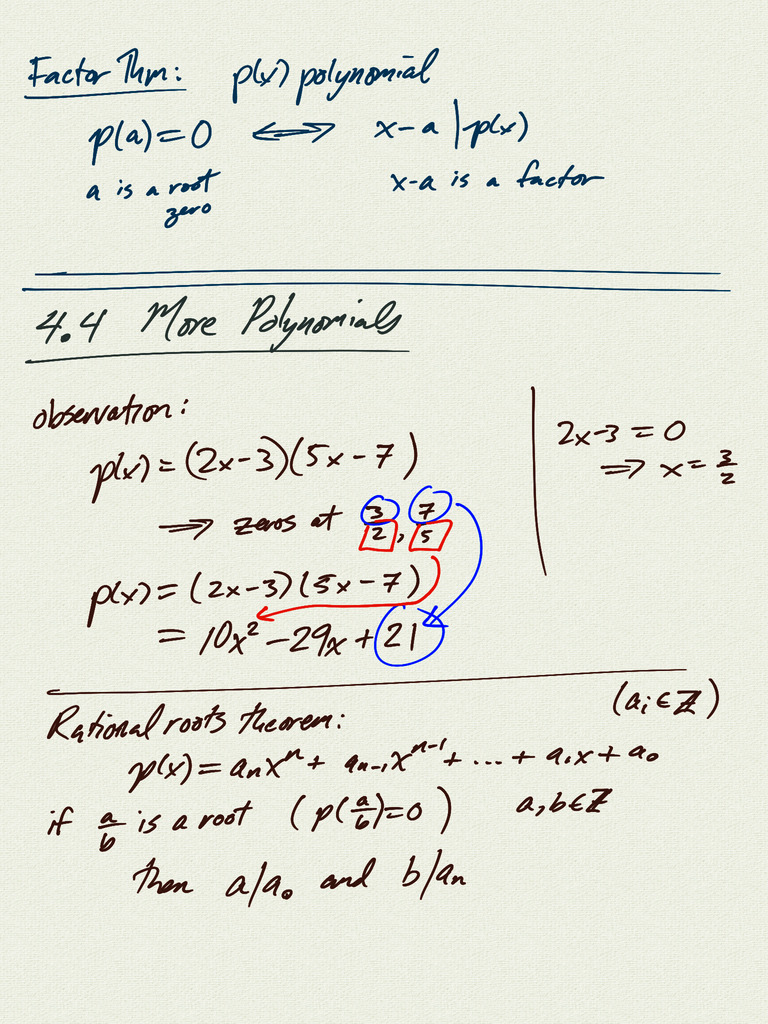 Factor Thm: p(x) polynomial
p(a) = 0 ⟺ x-a | p(x)
a is a root x-a is a factor
zero
4.4 More Polynomials
observation:
p(x) = (2x-3)(5x-7)
⟹ zeros at 3/2, 7/5
p(x) = (2x-3)(5x-7)
= 10x² - 29x + 21
2x-3 = 0
⟹ x = 3/2
Rational roots theorem: (aᵢ ∈ ℤ)
p(x) = aₙxⁿ + aₙ₋₁xⁿ⁻¹ + ... + a₁x + a₀
if a/b is a root (p(a/b) = 0) a, b ∈ ℤ
then a/a₀ and b/aₙ